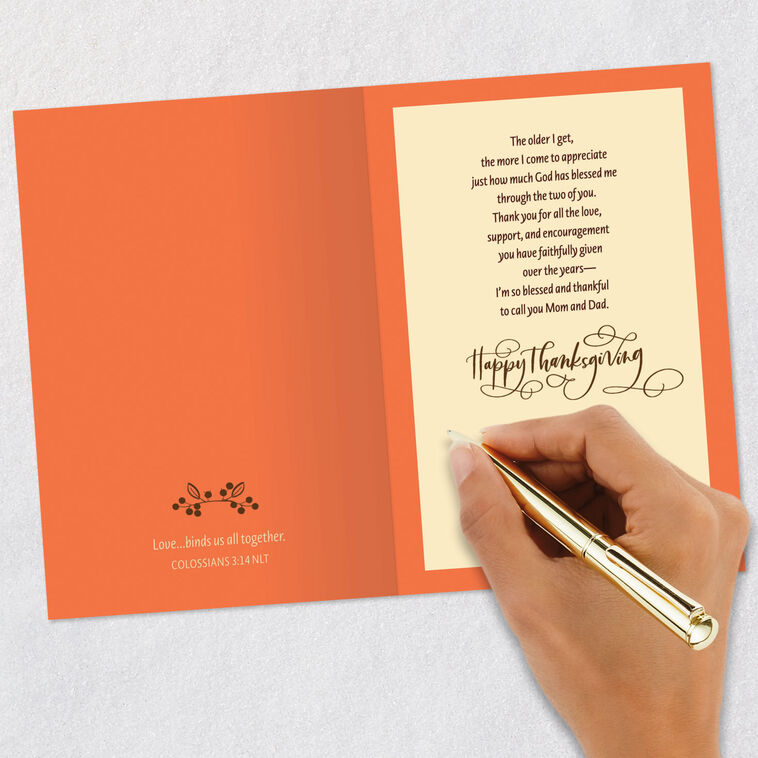 Love...binds us all together.
COLOSSIANS 3:14 NLT
The older I get,
the more I come to appreciate
just how much God has blessed me
through the two of you.
Thank you for all the love,
support, and encouragement
you have faithfully given
over the years—
I'm so blessed and thankful
to call you Mom and Dad.
Happy Thanksgiving